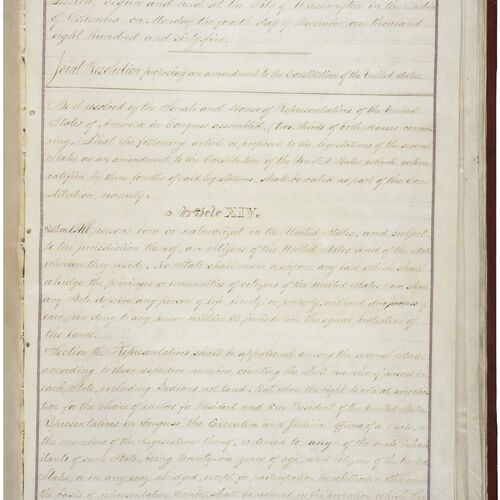 begun and held at the City of Washington, in the District
of Columbia, on Monday the fourth day of December, one thousand
eight hundred and sixty-five.
Joint Resolution proposing an amendment to the Constitution of the United States.
Be it resolved by the Senate and House of Representatives of the United
States of America in Congress assembled, (two-thirds of both Houses concur-
ring,) That the following article be proposed to the legislatures of the several
States as an amendment to the Constitution of the United States, which, when
ratified by three-fourths of said legislatures, shall be valid as part of the Con-
stitution, namely:
Article XIV.
Section 1. All persons born or naturalized in the United States, and subject
to the jurisdiction thereof, are citizens of the United States and of the State
wherein they reside. No State shall make or enforce any law which shall
abridge the privileges or immunities of citizens of the United States; nor shall
any State deprive any person of life, liberty, or property, without due process of
law; nor deny to any person within its jurisdiction the equal protection of
the laws.
Section 2. Representatives shall be apportioned among the several States
according to their respective numbers, counting the whole number of persons in
each State, excluding Indians not taxed. But when the right to vote at any elec-
tion for the choice of electors for President and Vice President of the United States,
Representatives in Congress, the Executive and Judicial officers of a State, or
the members of the Legislature thereof, is denied to any of the male inhab-
itants of such State, being twenty-one years of age, and citizens of the United
States, or in any way abridged, except for participation in rebellion, or other crime,
the basis of representation therein shall be reduced in the proportion which